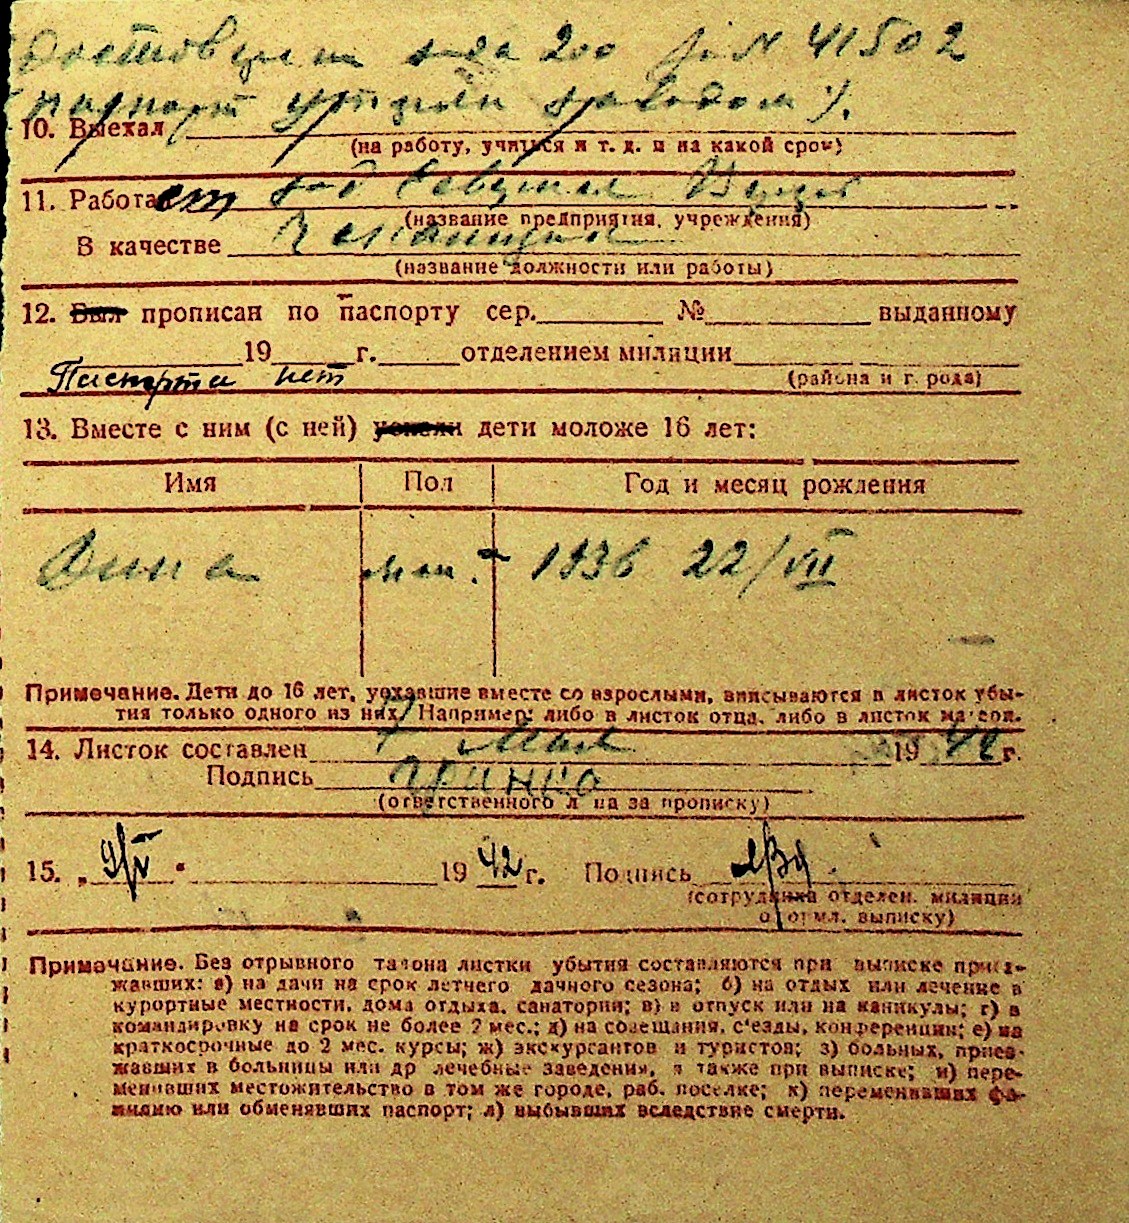 200 № 41502
10. Выехал
(на работу, учиться и т. д. и на какой срок)
11. Работает
(название предприятия, учреждения)
В качестве
(название должности или работы)
12. Был прописан по паспорту сер. № выданному
19 г. отделением милиции
Паспорта нет (района и города)
13. Вместе с ним (с ней) уехали дети моложе 16 лет:
Имя Пол Год и месяц рождения
1936 22/VII
Примечание. Дети до 16 лет, уехавшие вместе со взрослыми, вписываются в листок убы-
тия только одного из них. Например: либо в листок отца, либо в листок матери.
14. Листок составлен 7 Мая 1942 г.
Подпись
(ответственного лица за прописку)
15. „9/V“ 1942 г. Подпись
(сотрудника отделен. милиции
оформл. выписку)
Примечание. Без отрывного талона листки убытия составляются при выписке приез-
жавших: а) на дачи на срок летнего дачного сезона; б) на отдых или лечение в
курортные местности, дома отдыха, санатории; в) в отпуск или на каникулы; г) в
командировку на срок не более 2 мес.; д) на совещания, с'езды, конференции; е) на
краткосрочные до 2 мес. курсы; ж) экскурсантов и туристов; з) больных, приез-
жавших в больницы или др лечебные заведения, а также при выписке; и) пере-
менивших местожительство в том же городе, раб. поселке; к) переменивших фа-
милию или обменявших паспорт; л) выбывших вследствие смерти.